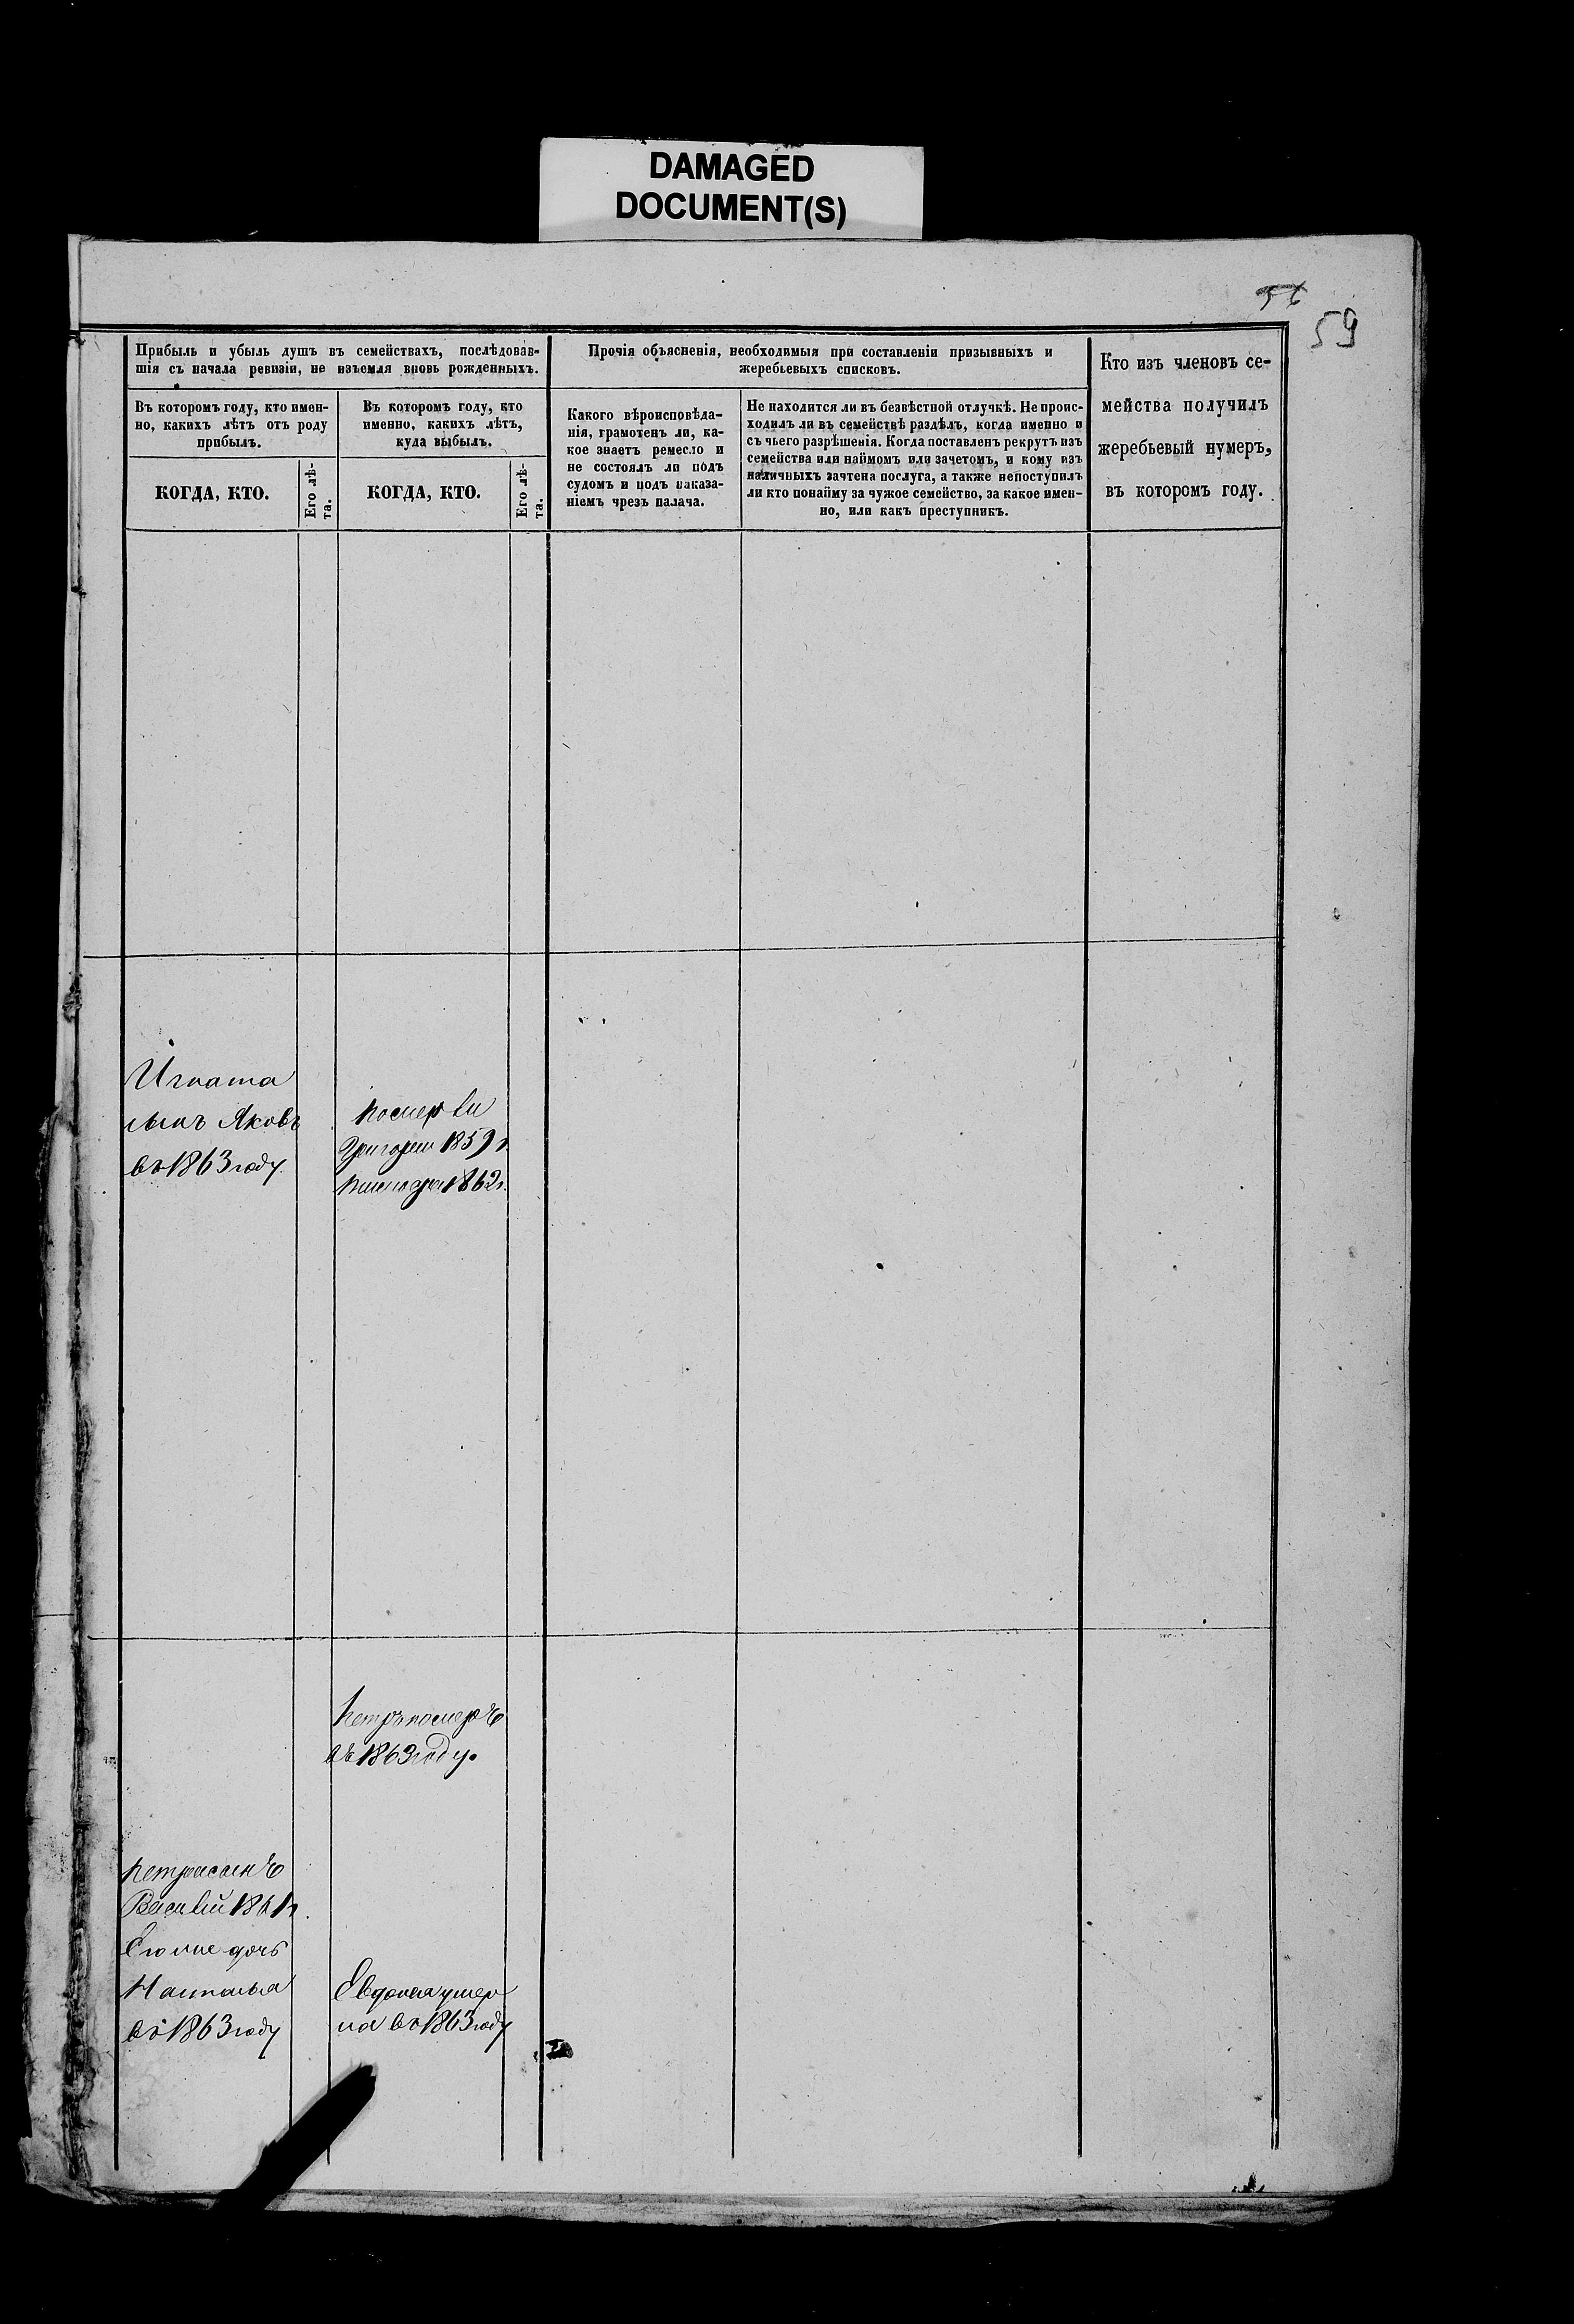 DAMAGED
DOCUMENT(S)
56
59
Прибыль и убыль душъ въ семействахъ, послѣдовав-
шія съ начала ревизіи, не изъемля вновь рожденныхъ.
Прочія объясненія, необходимыя при составленіи призывныхъ и
жеребьевыхъ списковъ.
Кто изъ членовъ се-
мейства получилъ
жеребьевый нумеръ,
въ которомъ году.
Въ которомъ году, кто имен-
но, какихъ лѣтъ отъ роду
прибылъ.
Въ которомъ году, кто
именно, какихъ лѣтъ,
куда выбылъ.
Какого вѣроисповѣда-
нія, грамотенъ ли, ка-
кое знаетъ ремесло и
не состоялъ ли подъ
судомъ и подъ наказа-
ніемъ чрезъ палача.
Не находится ли въ безвѣстной отлучкѣ. Не проис-
ходилъ ли въ семействѣ раздѣлъ, когда именно и
съ чьего разрѣшенія. Когда поставленъ рекрутъ изъ
семейства или наймомъ или зачетомъ, и кому изъ
наличныхъ зачтена послуга, а также непоступилъ
ли кто понайму за чужое семейство, за какое имен-
но, или какъ преступникъ.
КОГДА, КТО.
Его лѣ-
та.
КОГДА, КТО.
Его лѣ-
та.
Игната
сынъ Яковъ
въ 1863 году
померли
Григорий 1859 г.
1862 г.
Петръ померъ
въ 1863 году.
Петра сынъ
Василий 1861 г.
Ево же дочь
Наталья
въ 1863 году
Евдокия умер
ла въ 1863 году